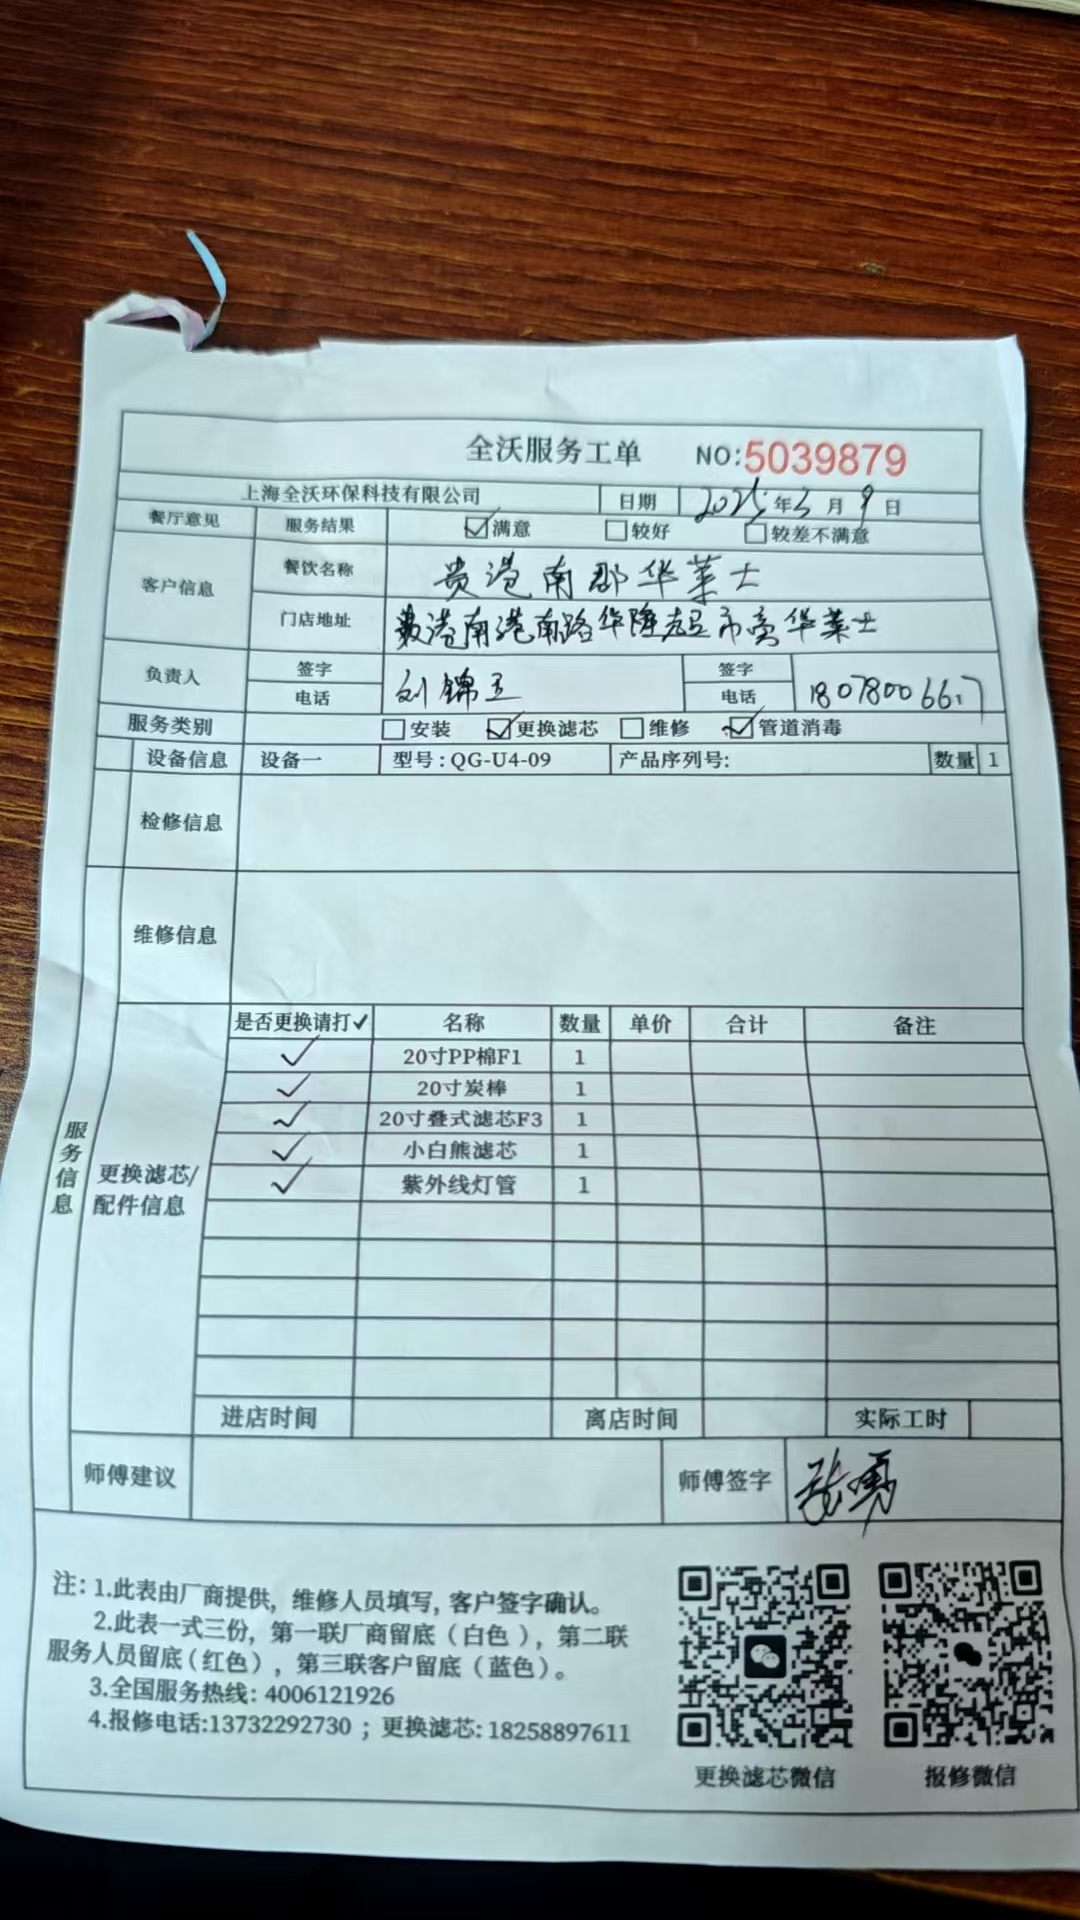 全沃服务工单 NO:5039879
上海全沃环保科技有限公司 日期 2025年3月9日
餐厅意见 服务结果 ☑满意 □较好 □较差不满意
客户信息 餐饮名称 贵港南郡华莱士
门店地址 贵港南港南路华隆超市旁华莱士
负责人 签字 刘锦玉 签字
电话 电话 18078006617
服务类别 □安装 ☑更换滤芯 □维修 ☑管道消毒
设备信息 设备一 型号:QG-U4-09 产品序列号: 数量 1
检修信息
维修信息
服务信息
更换滤芯/配件信息
是否更换请打✓ 名称 数量 单价 合计 备注
✓ 20寸PP棉F1 1
✓ 20寸炭棒 1
✓ 20寸叠式滤芯F3 1
✓ 小白熊滤芯 1
✓ 紫外线灯管 1
进店时间 离店时间 实际工时
师傅建议 师傅签字 张勇
注:1.此表由厂商提供,维修人员填写,客户签字确认。
2.此表一式三份,第一联厂商留底(白色),第二联
服务人员留底(红色),第三联客户留底(蓝色)。
3.全国服务热线:4006121926
4.报修电话:13732292730;更换滤芯:18258897611
更换滤芯微信 报修微信